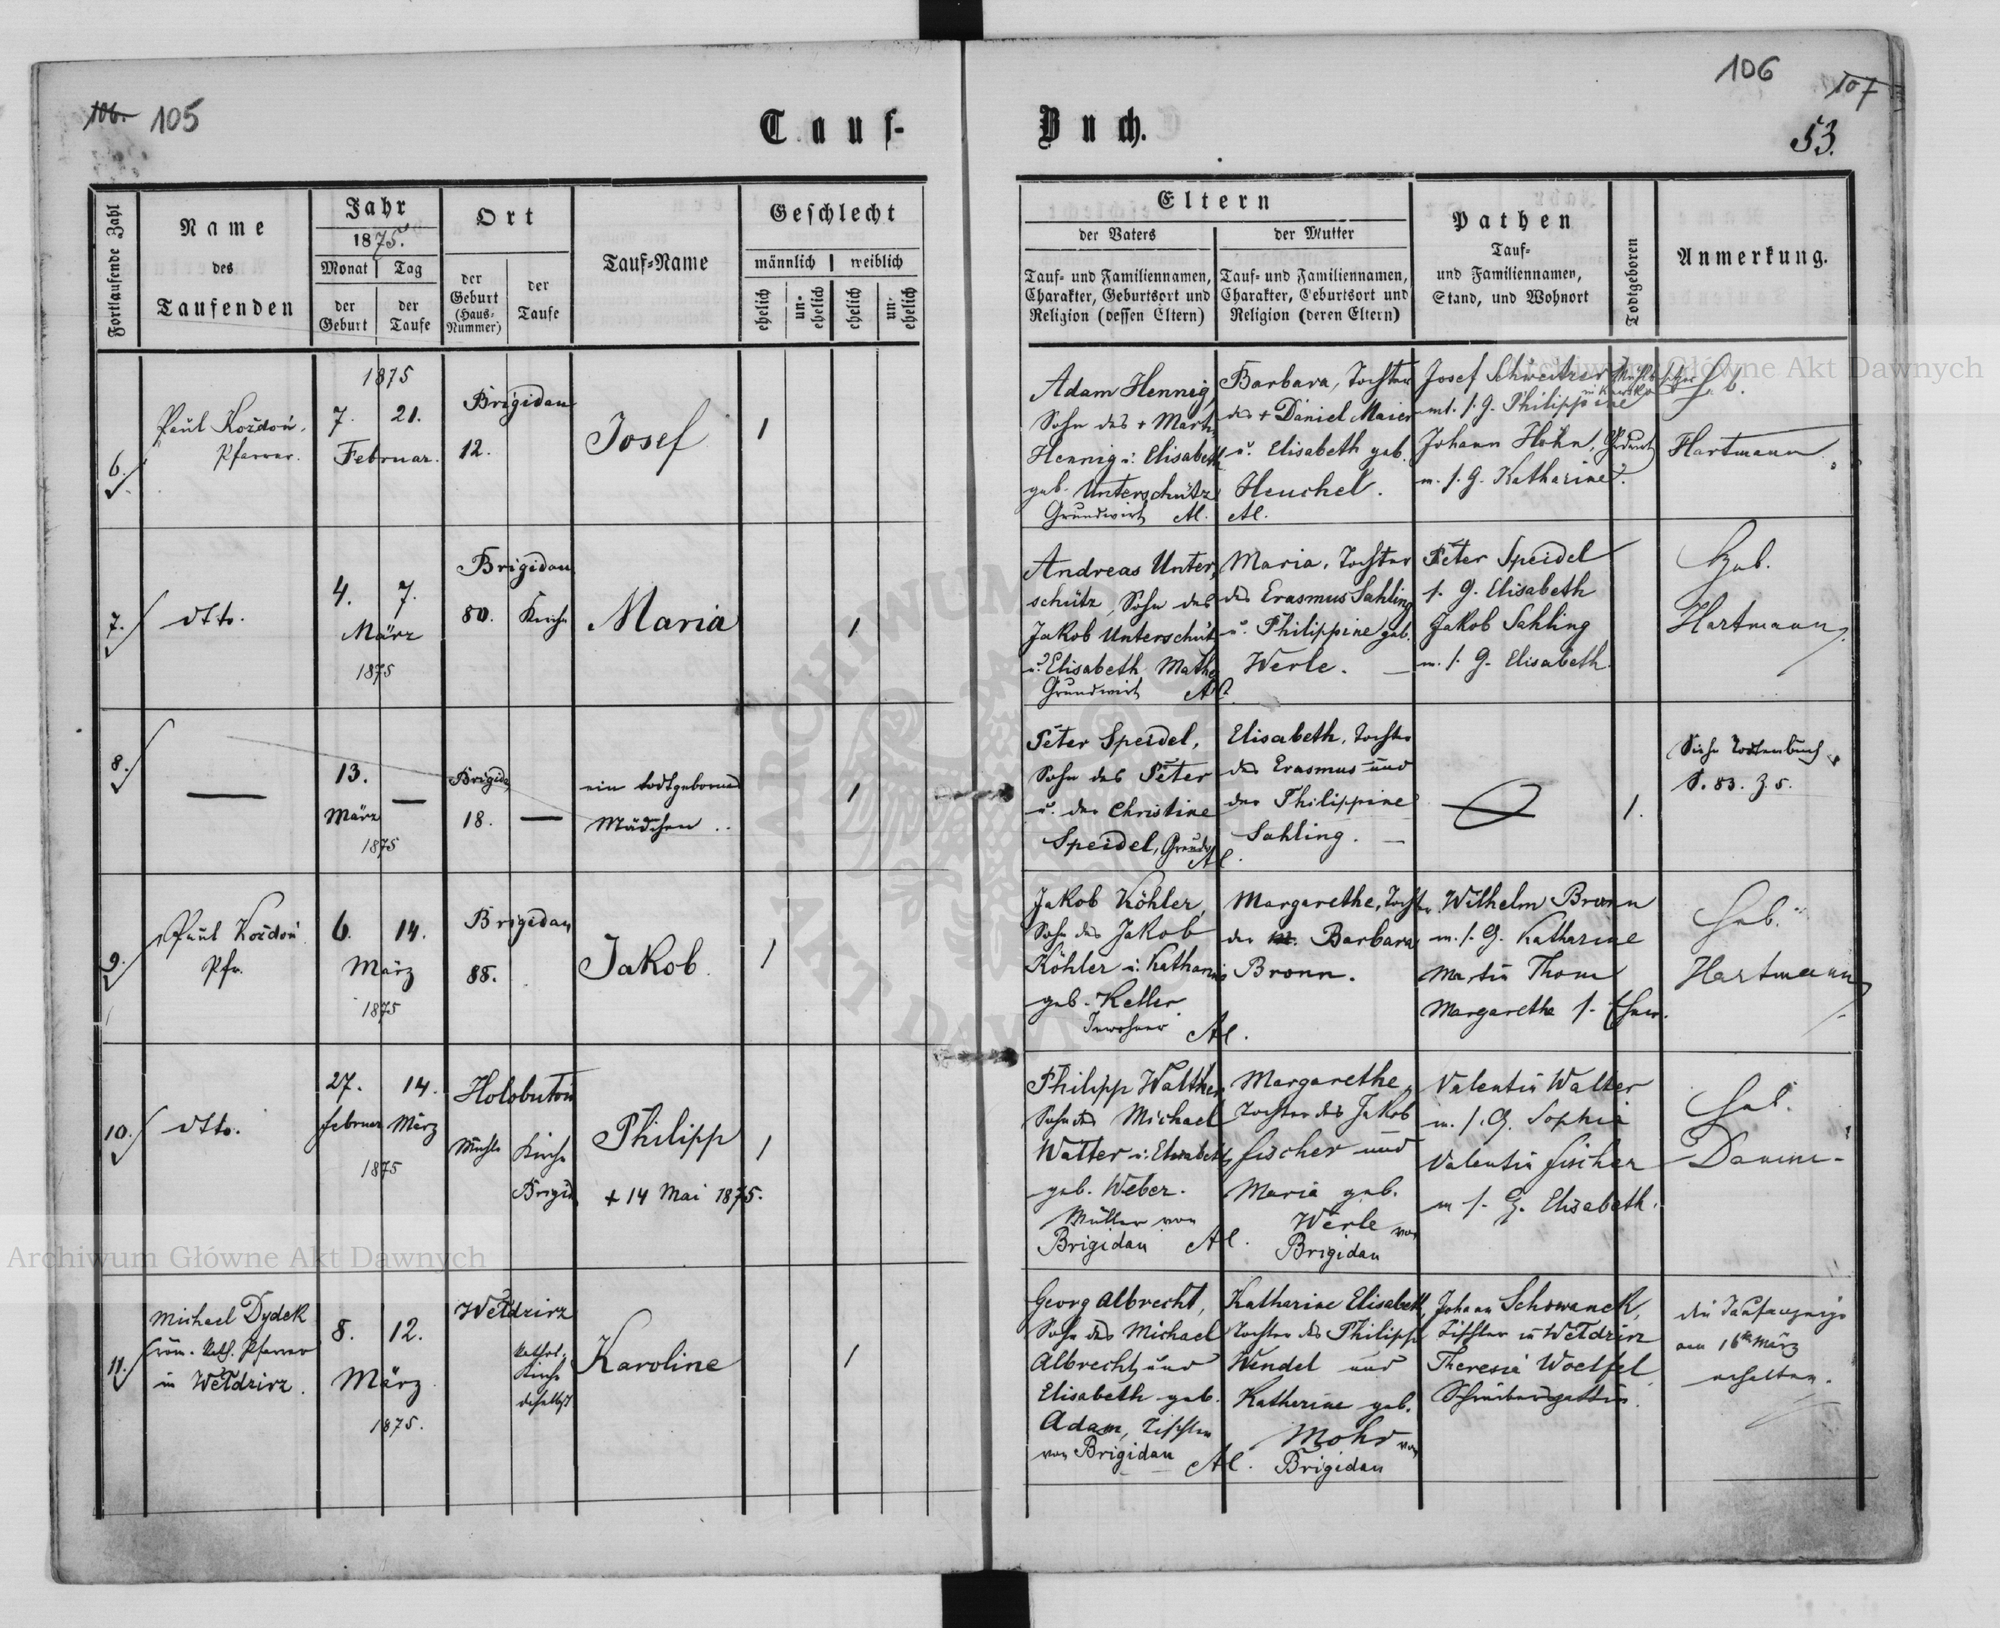 106. 105
106 107
53.
Tauf-Buch.
Fortlaufende Zahl
Name
des
Taufenden
Jahr
1875.
Monat Tag
der Geburt
der Taufe
Ort
der Geburt (Haus-Nummer)
der Taufe
Tauf-Name
Geschlecht
männlich weiblich
ehelich
unehelich
ehelich
unehelich
Eltern
der Vaters
der Mutter
Tauf- und Familiennamen,
Charakter, Geburtsort und
Religion (dessen Eltern)
Tauf- und Familiennamen,
Charakter, Geburtsort und
Religion (deren Eltern)
Pathen
Tauf-
und Familiennamen,
Stand, und Wohnort
Todtgeboren
Anmerkung.
6.
Paul Koždoń,
Pfarrer.
1875
7. 21.
Februar.
Brigidau
12.
Josef
1
Adam Hennig,
Sohn des + Mart.
Hennig u. Elisabeth
geb. Unterschütz
Grundwirt Al.
Barbara, Tochter
des + Daniel Maier
u. Elisabeth geb.
Heuchel.
Al.
Josef Schweitzer
mt. s. G. Philippine
Johann Höhn,
m. s. G. Katharine.
Hartmann
7.
dtto.
4. 7.
März
1875
Brigidau
80. Kirche
Maria
1
Andreas Unter-
schütz, Sohn des
Jakob Unterschütz
u. Elisabeth Mathe
Grundwirt Al.
Maria, Tochter
des Erasmus Sahling
u. Philippine geb.
Werle.
Peter Speidel
s. G. Elisabeth
Jakob Sahling
m. s. G. Elisabeth
Heb.
Hartmann
8.
13.
März
1875
Brigida
18.
ein todtgebornes
Mädchen
1
Peter Speidel,
Sohn des Peter
u. der Christine
Speidel, Grundw.
Al.
Elisabeth, Tochter
des Erasmus und
der Philippine
Sahling.
1.
Siehe Todtenbuch
S. 83. Z. 5.
9.
Paul Koždoń
Pfr.
6. 14.
März
1875
Brigidau
88.
Jakob
1
Jakob Köhler,
Sohn des Jakob
Köhler u. Katharine
geb. Keller.
Inwohner Al.
Margarethe, Tochter
der Barbara
Bronn.
Wilhelm Bronn
m. s. G. Katharine
Martin Thom
Margarethe s. Ehew.
Heb.
Hartmann
10.
dtto.
27. 14.
Februar März
1875
Holobutow
Mühle Kirche
Brigid.
Philipp
+ 14 Mai 1875.
1
Philipp Walther,
Sohn des Michael
Walter u. Elisabeth
geb. Weber.
Müller von
Brigidau Al.
Margarethe,
Tochter des Jakob
Fischer und
Maria geb.
Werle von
Brigidau
Valentin Walter
m. s. G. Sophia
Valentin Fischer
m. s. G. Elisabeth.
Heb.
Damm
11.
Michael Dydek
röm. kath. Pfarrer
in Wełdzirz.
8. 12.
März
1875.
Wełdzirz
kathol.
Kirche
daselbst
Karoline
1
Georg Albrecht,
Sohn des Michael
Albrecht und
Elisabeth geb.
Adam, Tischler
von Brigidau Al.
Katharine Elisabeth,
Tochter des Philipp
Wendel und
Katherine geb.
Mohr von
Brigidau
Johann Schowanek,
Tischler in Wełdzirz
Theresia Woelfel
Schreibersgattin.
die Taufanzeige
am 16ten März
erhalten.
Archiwum Główne Akt Dawnych
Archiwum Główne Akt Dawnych